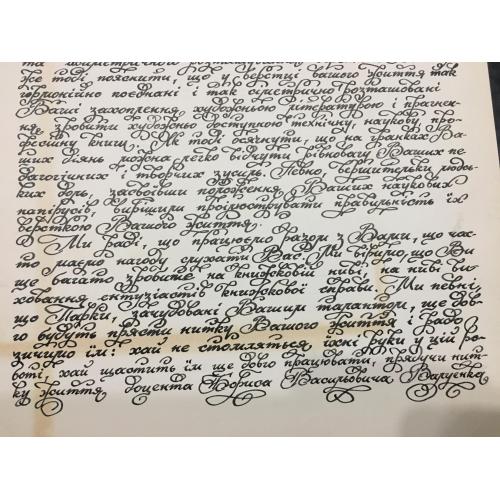 та
Же тоді пояснити, що у верстці Вашого життя так
гармонійно поєднані і так симетрично розташовані
Ваші захоплення художньою літературою і прагнен-
ня зробити художньо доступною технічну, наукову, про-
фесійну книгу. Як тоді осягнути, що на гранках Ва-
ших діянь можна легко відчути рівновагу Ваших пе-
дагогічних і творчих зусиль. Певно, вершительки людсь-
ких доль, засвоївши положення Ваших наукових
папірусів, вирішили проілюструвати правильність їх
версткою Вашого життя.
Ми раді, що працюємо разом з Вами, що час-
то маємо нагоду слухати Вас. Ми віримо, що Ви
ще багато зробите на книжковій ниві, на ниві ви-
ховання ентузіастів книжкової справи. Ми певні,
що Парки, зачудовані Вашим талантом, ще дов-
го будуть прясти нитку Вашого життя і радо
зичимо їм: хай не стомляться їхні руки у цій ро-
боті, хай щастить їм ще довго працювати, прядучи нит-
ку життя доцента Бориса Васильовича Валуєнка